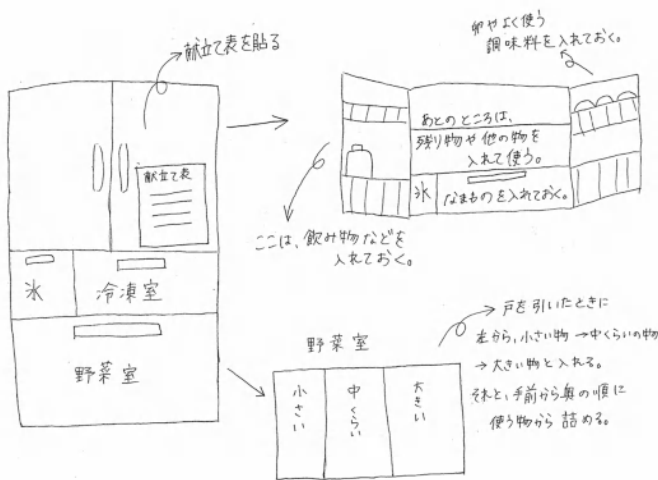 献立て表を貼る
献立て表
氷
冷凍室
野菜室
卵やよく使う
調味料を入れておく。
あとのところは、
残り物や他の物を
入れて使う。
氷
なまものを入れておく。
ここは、飲み物などを
入れておく。
野菜室
小さい
中くらい
大きい
戸を引いたときに
左から、小さい物→中くらいの物
→大きい物と入れる。
それと、手前から奥の順に
使う物から詰める。